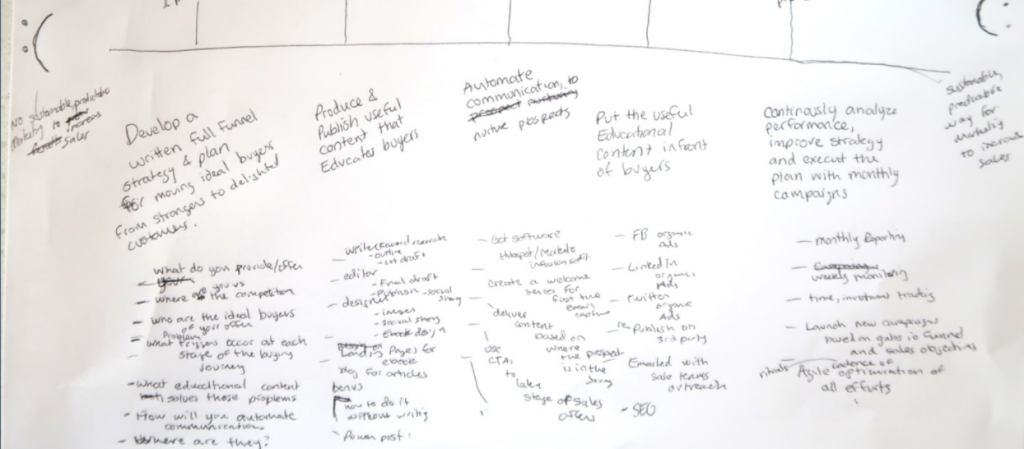 No sustainable, predictable
marketing to increase
sales
Develop a
written full funnel
strategy & plan
for moving ideal buyers
from strangers to delighted
customers.
Produce &
Publish useful
content that
Educates buyers
Automate
communication, to
nurture prospects
Put the useful
Educational
Content in front
of buyers
Continously analyze
performance,
improve strategy
and execut the
plan with monthly
campaigns
sustainable,
predictable
way for
marketing
to increase
sales
What do you provide/offer
- where are you vs the competition
- who are the ideal buyers
of your offer
- what triggers occur at each
stage of the buying
journey
- what educational content
solves those problems
- How will you automate
communication
- Where are they?
writer keyword research
- outline
- 1st draft
editor
- Final draft
- Publish
designer
- Images
- Ebook design
Landing Pages for
ebook
blog for articles
bonus
how to do it
without writing
Power post!
- Get software
Hubspot/Marketo
create a welcome
series for
first time
email
capture
deliver
content
based on
where the prospect
is in the
use
CTAs
to
later
stage of sales
offers
- FB organic
Ads
- LinkedIn
organic
Ads
- Twitter
organic
Ads
re Publish on
3rd party
Emailed with
sales teams
outreach
- SEO
- monthly Reporting
weekly monitoring
- time, investment tracking
- Launch new campaigns
based on gaps in funnel
and sales objectives
rituals
cadence of
Agile optimization of
all efforts